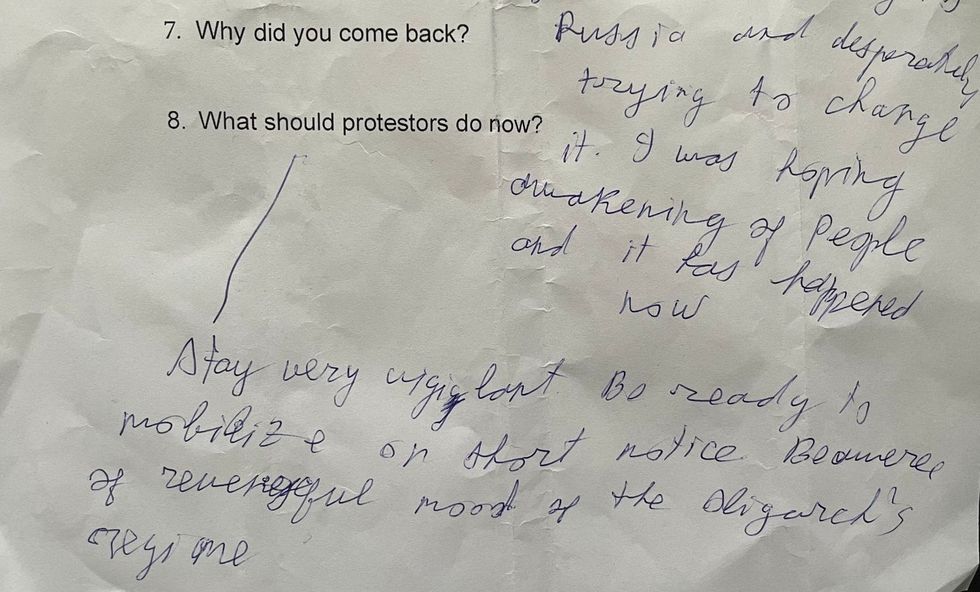 7. Why did you come back?
Russia and desperately
torying to change
it. I was hoping
awakening of People
and it has happened
now
8. What should protestors do now?
Stay very vigiglant. Be ready to
mobilize on short notice. Beawere
of revengeful mood of the Oligarch's
regime